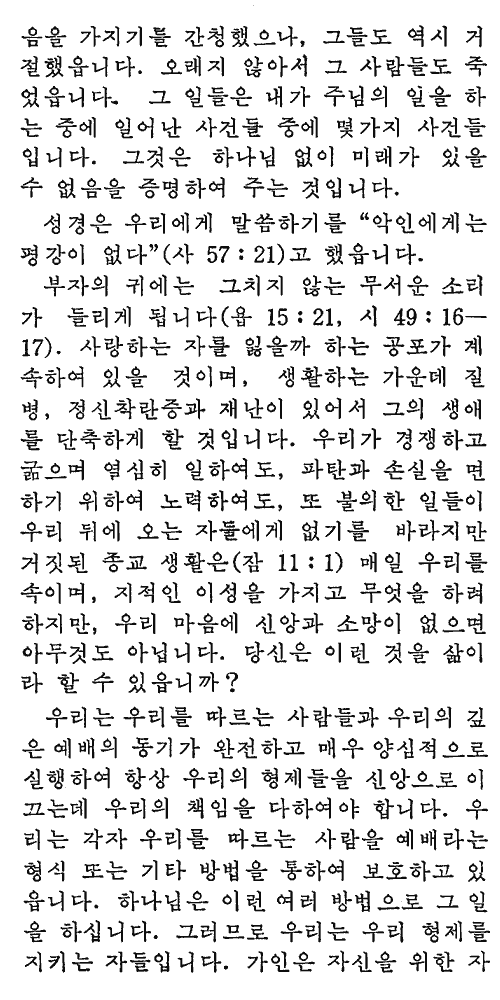 음을 가지기를 간청했으나, 그들도 역시 거
절했읍니다. 오래지 않아서 그 사람들도 죽
었읍니다. 그 일들은 내가 주님의 일을 하
는 중에 일어난 사건들 중에 몇가지 사건들
입니다. 그것은 하나님 없이 미래가 있을
수 없음을 증명하여 주는 것입니다.
성경은 우리에게 말씀하기를 “악인에게는
평강이 없다”(사 57 : 21)고 했읍니다.
부자의 귀에는 그치지 않는 무서운 소리
가 들리게 됩니다(욥 15 : 21, 시 49 : 16—
17). 사랑하는 자를 잃을까 하는 공포가 계
속하여 있을 것이며, 생활하는 가운데 질
병, 정신착란증과 재난이 있어서 그의 생애
를 단축하게 할 것입니다. 우리가 경쟁하고
굶으며 열심히 일하여도, 파탄과 손실을 면
하기 위하여 노력하여도, 또 불의한 일들이
우리 뒤에 오는 자들에게 없기를 바라지만
거짓된 종교 생활은(잠 11 : 1) 매일 우리를
속이며, 지적인 이성을 가지고 무엇을 하려
하지만, 우리 마음에 신앙과 소망이 없으면
아무것도 아닙니다. 당신은 이런 것을 삶이
라 할 수 있읍니까?
우리는 우리를 따르는 사람들과 우리의 깊
은 예배의 동기가 완전하고 매우 양심적으로
실행하여 항상 우리의 형제들을 신앙으로 이
끄는데 우리의 책임을 다하여야 합니다. 우
리는 각자 우리를 따르는 사람을 예배라는
형식 또는 기타 방법을 통하여 보호하고 있
읍니다. 하나님은 이런 여러 방법으로 그 일
을 하십니다. 그러므로 우리는 우리 형제를
지키는 자들입니다. 가인은 자신을 위한 자